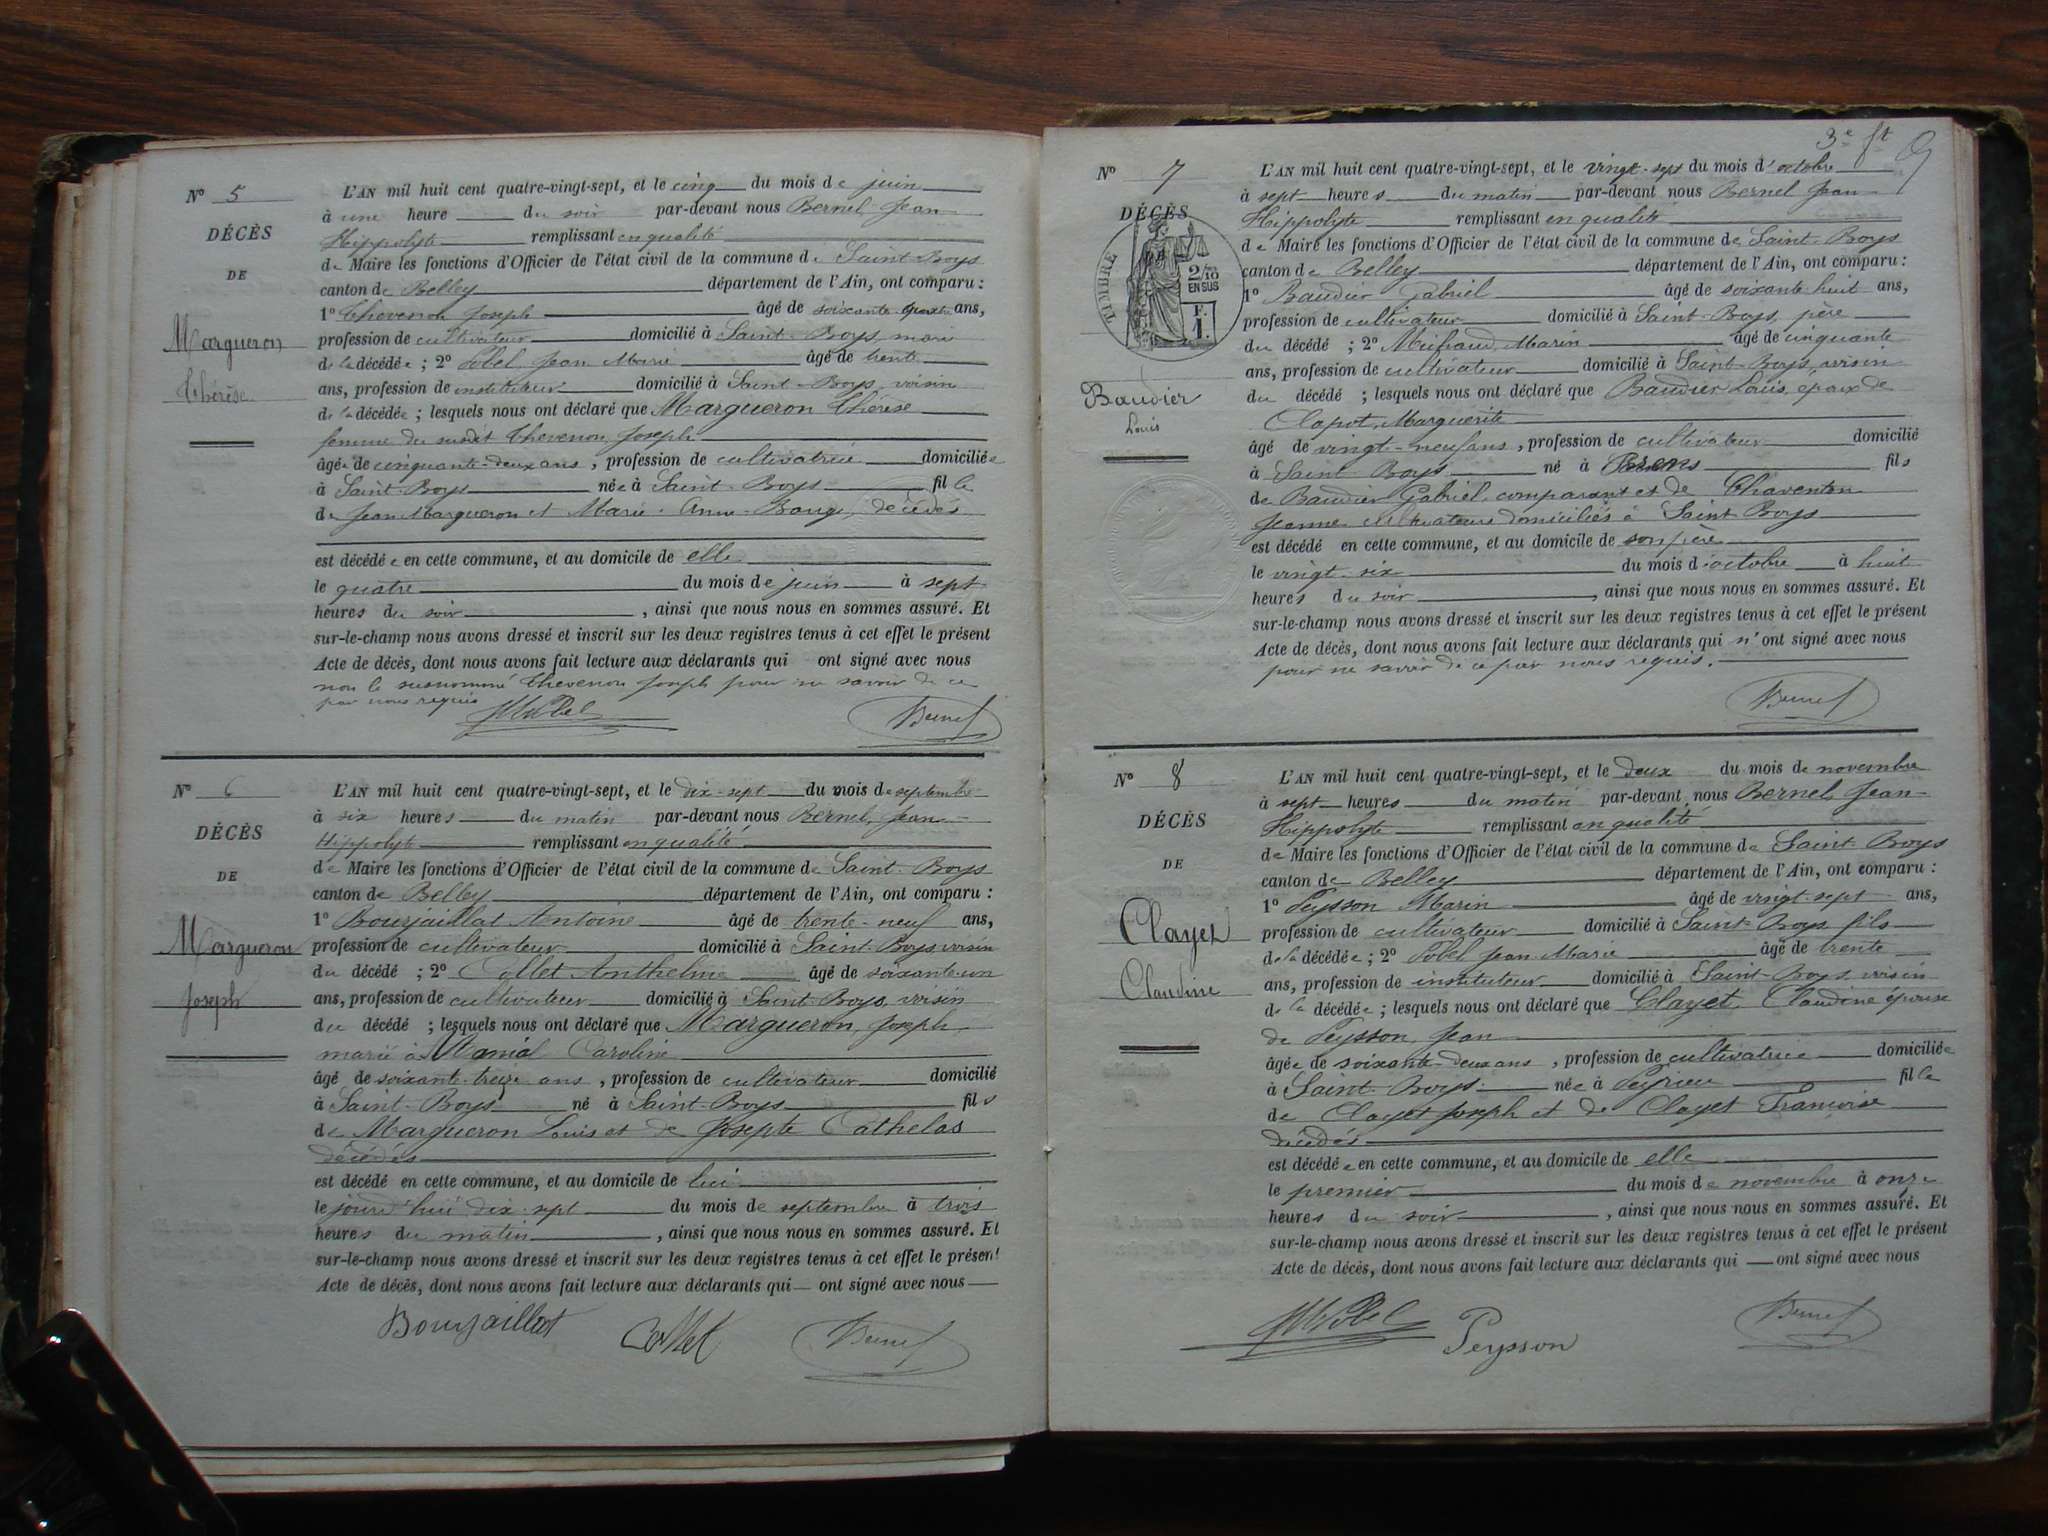 Nº 5
DÉCÈS
DE
Margueron
Thérèse
L'AN mil huit cent quatre-vingt-sept, et le cinq du mois de juin
à une heure du soir par-devant nous Bernel Jean
Hippolyte remplissant en qualité
de Maire les fonctions d'Officier de l'état civil de la commune de Saint-Boys
canton de Belley département de l'Ain, ont comparu :
1º Thevenon Joseph âgé de soixante quatre ans,
profession de cultivateur domicilié à Saint-Boys, mari
de la décédée ; 2º Jean Marie âgé de trente
ans, profession de instituteur domicilié à Saint-Boys, voisin
de la décédée ; lesquels nous ont déclaré que Margueron Thérèse
femme du susdit Thevenon Joseph
âgée de cinquante-deux ans, profession de cultivatrice domiciliée
à Saint-Boys née à Saint-Boys fille
de Jean Margueron et Marie-Anne décédés
est décédée en cette commune, et au domicile de elle
le quatre du mois de juin à sept
heures du soir, ainsi que nous nous en sommes assuré. Et
sur-le-champ nous avons dressé et inscrit sur les deux registres tenus à cet effet le présent
Acte de décès, dont nous avons fait lecture aux déclarants qui ont signé avec nous
non le susnommé Thevenon Joseph pour ne savoir de ce
par nous requis
Bernel
Nº 6
DÉCÈS
DE
Margueron
Joseph
L'AN mil huit cent quatre-vingt-sept, et le dix-sept du mois de septembre
à six heures du matin par-devant nous Bernel, Jean
Hippolyte remplissant en qualité
de Maire les fonctions d'Officier de l'état civil de la commune de Saint-Boys
canton de Belley département de l'Ain, ont comparu :
1º Bourjaillat Antoine âgé de trente-neuf ans,
profession de cultivateur domicilié à Saint-Boys, voisin
du décédé ; 2º Collet Anthelme âgé de soixante-un
ans, profession de cultivateur domicilié à Saint-Boys, voisin
du décédé ; lesquels nous ont déclaré que Margueron, Joseph
marié à Caroline
âgé de soixante-treize ans, profession de cultivateur domicilié
à Saint-Boys né à Saint-Boys fils
de Margueron Louis et de Josepte Cathelas
décédés
est décédé en cette commune, et au domicile de lui
le jourd'hui dix-sept du mois de septembre à trois
heures du matin, ainsi que nous nous en sommes assuré. Et
sur-le-champ nous avons dressé et inscrit sur les deux registres tenus à cet effet le présent
Acte de décès, dont nous avons fait lecture aux déclarants qui ont signé avec nous
Bourjaillat Collet Bernel
3e ft
Nº 7
DÉCÈS
DE
TIMBRE
2/10
EN SUS
F.
1.
Baudier
Louis
L'AN mil huit cent quatre-vingt-sept, et le vingt-sept du mois d'octobre
à sept heures du matin par-devant nous Bernel Jean
Hippolyte remplissant en qualité
de Maire les fonctions d'Officier de l'état civil de la commune de Saint-Boys
canton de Belley département de l'Ain, ont comparu :
1º Baudier Gabriel âgé de soixante-huit ans,
profession de cultivateur domicilié à Saint-Boys, père
du décédé ; 2º Marin âgé de cinquante
ans, profession de cultivateur domicilié à Saint-Boys, voisin
du décédé ; lesquels nous ont déclaré que Baudier Louis, époux de
Clapot, Marguerite
âgé de vingt-neuf ans, profession de cultivateur domicilié
à Saint-Boys né à Brens fils
de Baudier Gabriel, comparant et de Thaventon
Jeanne cultivateurs domiciliés à Saint Boys
est décédé en cette commune, et au domicile de son père
le vingt-six du mois d'octobre à huit
heures du soir, ainsi que nous nous en sommes assuré. Et
sur-le-champ nous avons dressé et inscrit sur les deux registres tenus à cet effet le présent
Acte de décès, dont nous avons fait lecture aux déclarants qui n'ont signé avec nous
pour ne savoir de ce par nous requis.
Bernel
Nº 8
DÉCÈS
DE
Clayet
Claudine
L'AN mil huit cent quatre-vingt-sept, et le deux du mois de novembre
à sept heures du matin par-devant nous Bernel, Jean
Hippolyte remplissant en qualité
de Maire les fonctions d'Officier de l'état civil de la commune de Saint-Boys
canton de Belley département de l'Ain, ont comparu :
1º Peysson Marin âgé de vingt-sept ans,
profession de cultivateur domicilié à Saint-Boys fils
de la décédée ; 2º Jean Marie âgé de trente
ans, profession de instituteur domicilié à Saint-Boys, voisin
de la décédée ; lesquels nous ont déclaré que Clayet, Claudine épouse
de Peysson, Jean
âgée de soixante-deux ans, profession de cultivatrice domiciliée
à Saint-Boys née à Peyrieu fille
de Clayet Joseph et de Clayet Françoise
décédés
est décédée en cette commune, et au domicile de elle
le premier du mois de novembre à onze
heures du soir, ainsi que nous nous en sommes assuré. Et
sur-le-champ nous avons dressé et inscrit sur les deux registres tenus à cet effet le présent
Acte de décès, dont nous avons fait lecture aux déclarants qui ont signé avec nous
Peysson Bernel